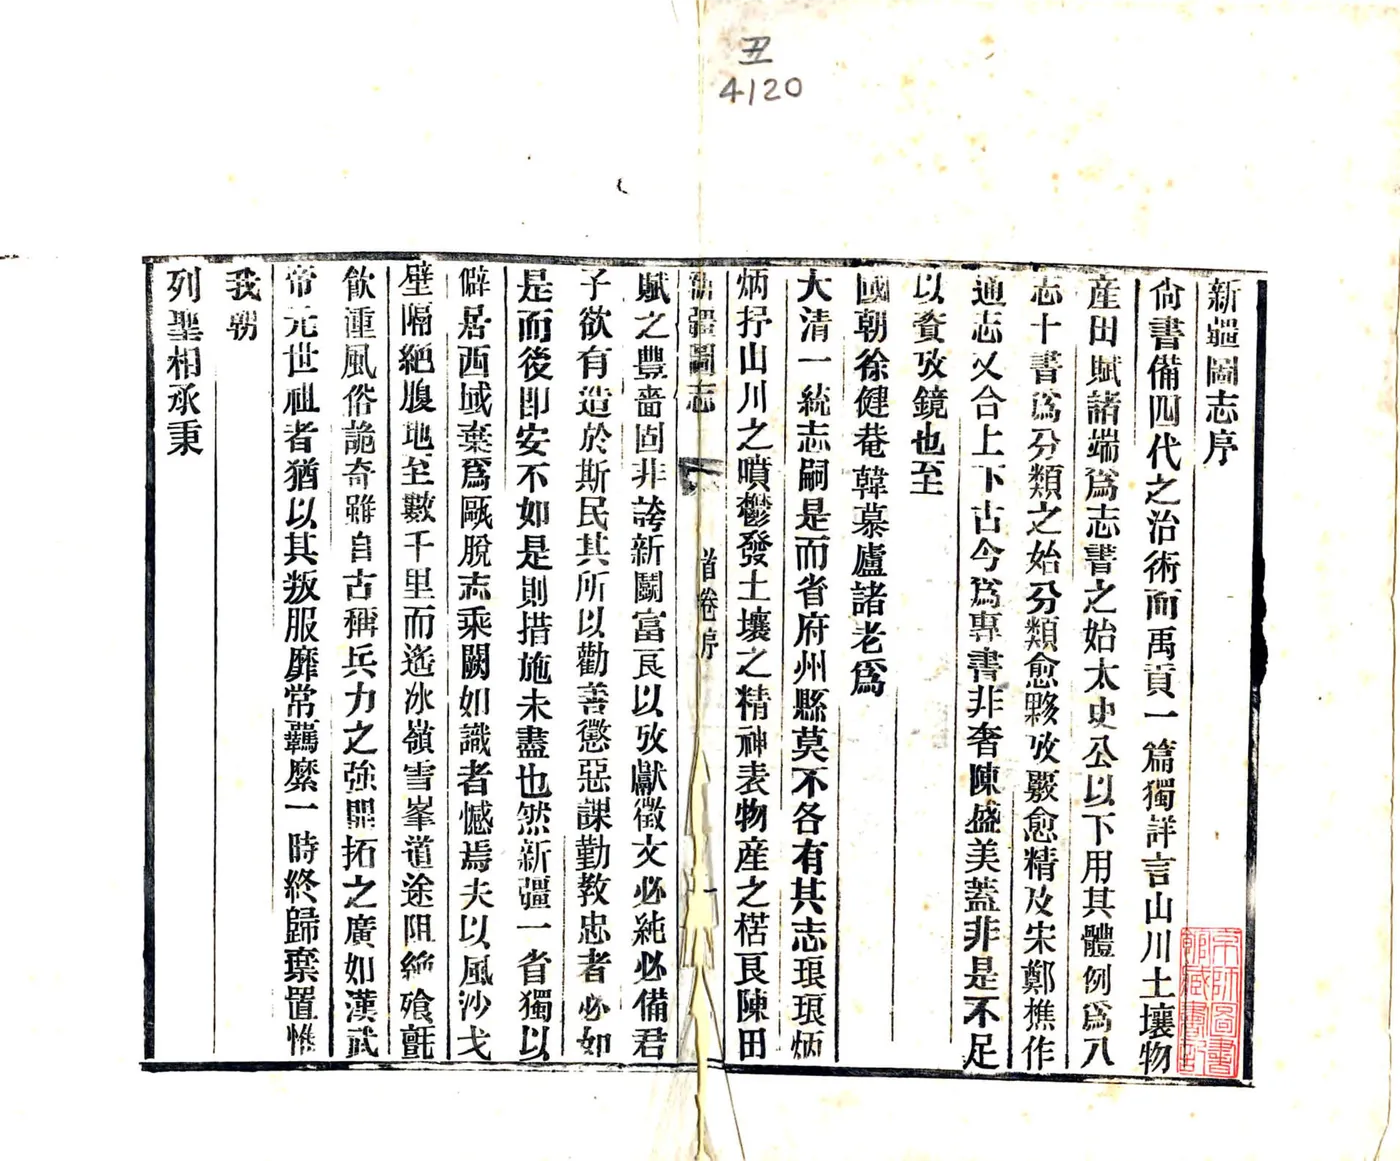 丑
4120
新疆圖志序
尙書備四代之治術而禹貢一篇獨詳言山川土壤物
産田賦諸端爲志書之始太史公以下用其體例爲八
志十書爲分類之始分類愈夥攷覈愈精及宋鄭樵作
通志又合上下古今爲專書非奢陳盛美蓋非是不足
以資攷鏡也至
國朝徐健菴韓慕廬諸老爲
大清一統志嗣是而省府州縣莫不各有其志琅琅炳
炳抒山川之噴鬱發土壤之精神表物産之楛良陳田
新疆圖志 首卷序 一
賦之豐嗇固非誇新鬭富良以攷獻徵文必純必備君
子欲有造於斯民其所以勸善懲惡課勤教忠者必如
是而後卽安不如是則措施未盡也然新疆一省獨以
僻居西域棄爲甌脫志乘闕如識者憾焉夫以風沙戈
壁隔絕腹地至數千里而遙冰嶺雪峯道途阻絕飡氈
飮湩風俗詭奇雖自古稱兵力之强開拓之廣如漢武
帝元世祖者猶以其叛服靡常羈縻一時終歸棄置惟
我朝
列聖相承秉
京師圖書
館藏書記